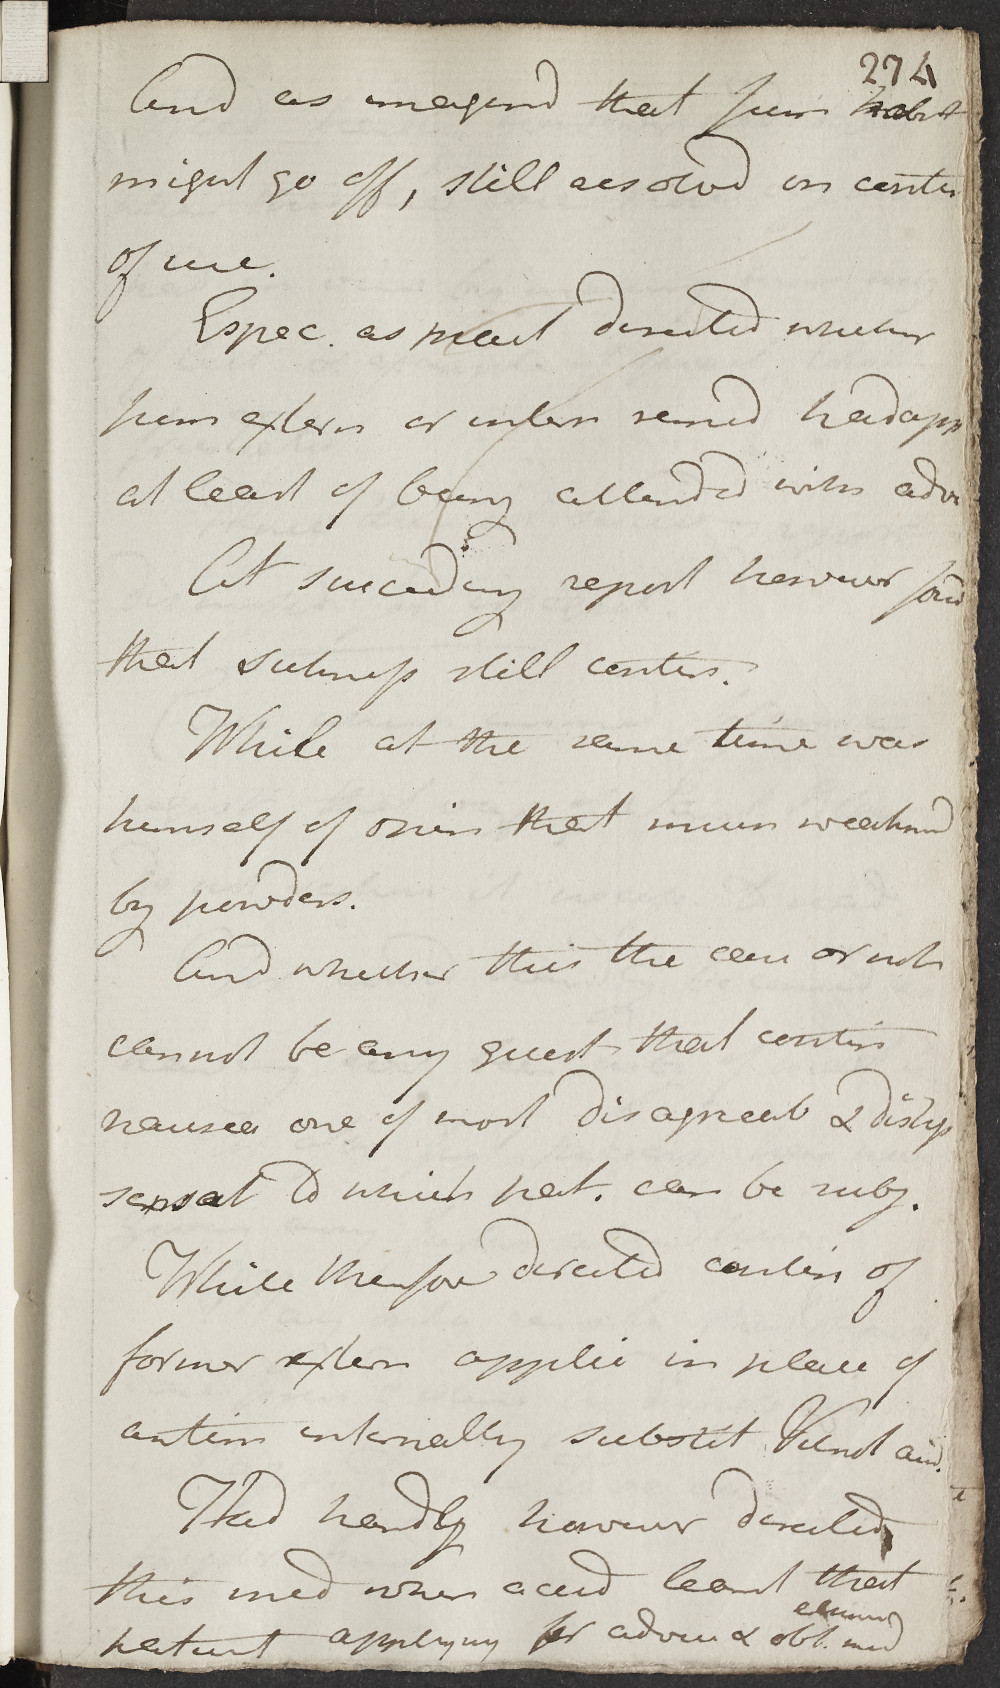 274
And as imagind that from habit
might go off, still resolvd on contin
of use.
Espec. as meant directed whether
from extern or intern remed had app
at least of being attended with adva
At succeeding report however found
that sickness still contin.
While at the same time was
himself of opin that much weakned
by powders.
And whether this the case or not
cannot be any quest that contin
nausea one of most disagreeab & distress
sensat to which pat. can be subj.
While therefore directed contin of
former extern applic in place of
antim internally substit
Had hardly however directed
this med when accid learnt that
patient applying for advice & obt. med